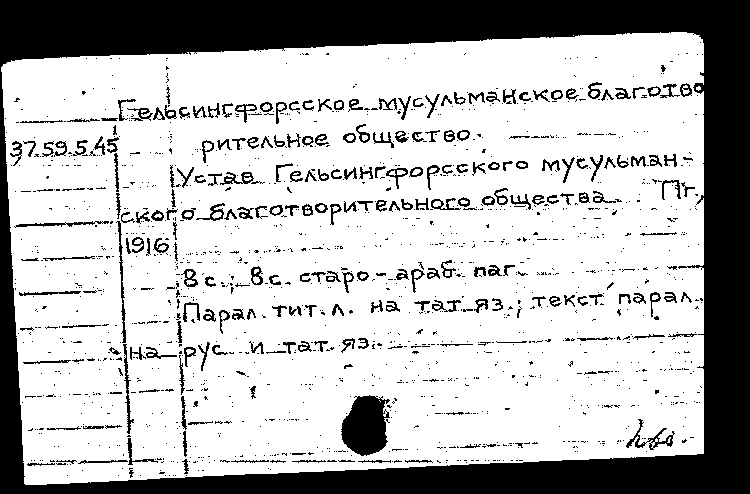 Гельсингфорсское мусульманское благотво
37.59.5.45 рительное общество.
Устав Гельсингфорсского мусульман-
ского благотворительного общества. Пг,
1916
8 с.; 8 с. старо-араб. паг.
Парал. тит. л. на тат. яз.; текст парал.
на рус. и тат. яз.